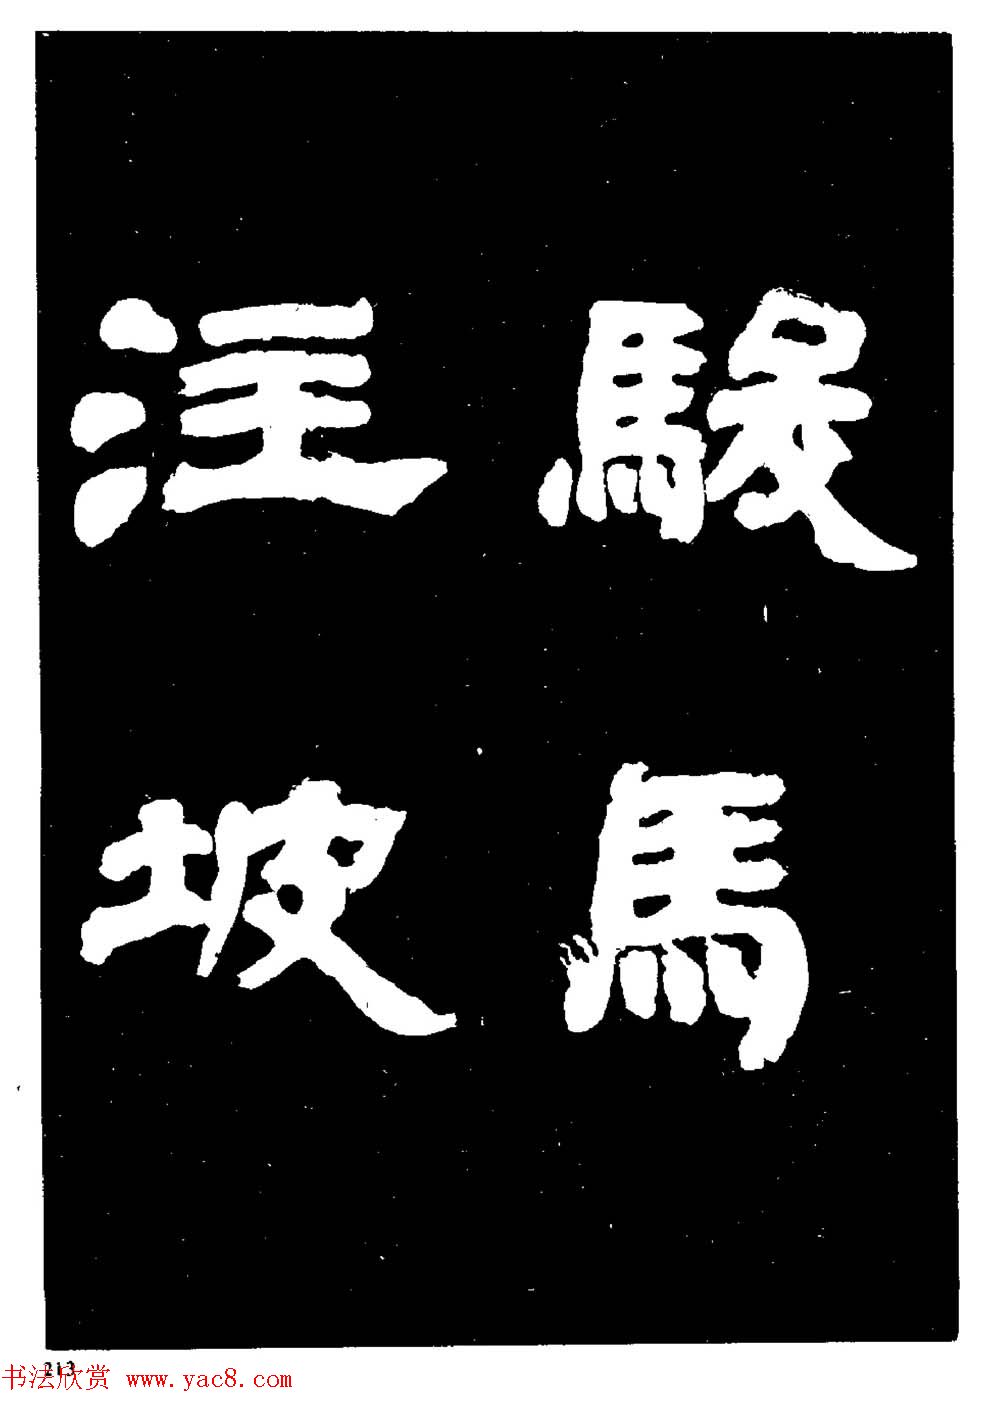 駿馬
注坡
213
书法欣赏 www.yac8.com